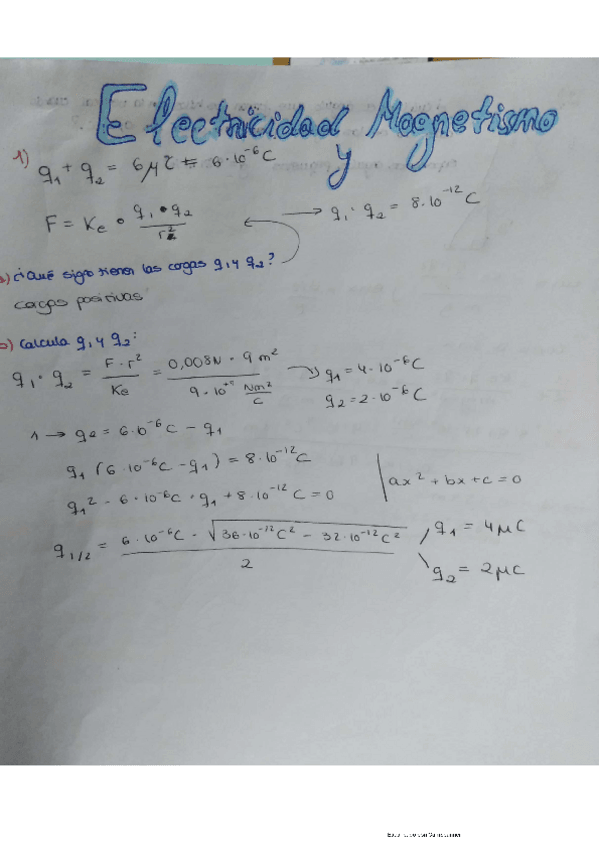 Electricidad
y Magnetismo
1) q₁ + q₂ = 6μC = 6·10⁻⁶C
F = Ke · q₁·q₂ / r²
→ q₁·q₂ = 8·10⁻¹² C
a) ¿Qué signo tienen las cargas q₁ y q₂?
cargas positivas
b) Calcula q₁ y q₂:
q₁·q₂ = F·r² / Ke = 0,008N · 9 m² / 9·10⁺⁹ Nm²/C → q₁ = 4·10⁻⁶C
q₂ = 2·10⁻⁶C
1 → q₂ = 6·10⁻⁶C - q₁
q₁ (6·10⁻⁶C - q₁) = 8·10⁻¹²C
q₁² - 6·10⁻⁶C · q₁ + 8·10⁻¹²C = 0 | ax² + bx + c = 0
q₁/₂ = 6·10⁻⁶C - √(36·10⁻¹²C² - 32·10⁻¹²C²) / 2
q₁ = 4μC
q₂ = 2μC